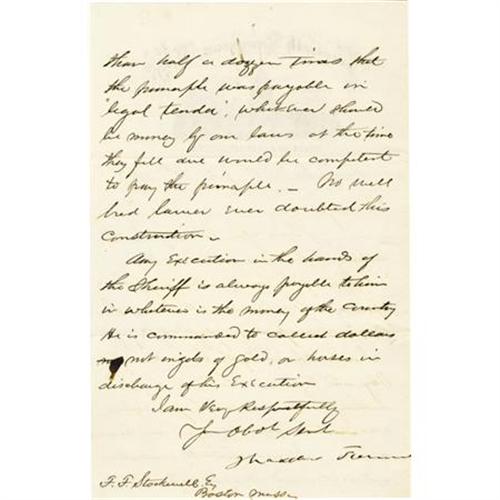 than half a dozzen times that
the principle was payable in
"legal tender", whatever should
be money by our laws at the time
they fell due would be competent
to pay the principle. — No well
bred lawyer ever doubted this
Construction —
Any Execution in the hands of
the Sheriff is always payable to him
in whatever is the money of the Country
He is commanded to collect dollars
not ingots of gold, or horses in
discharge of his Execution
I am Very Respectfully
Yr Obdt Servt
F. F. Stockwell Esq
Boston Mass